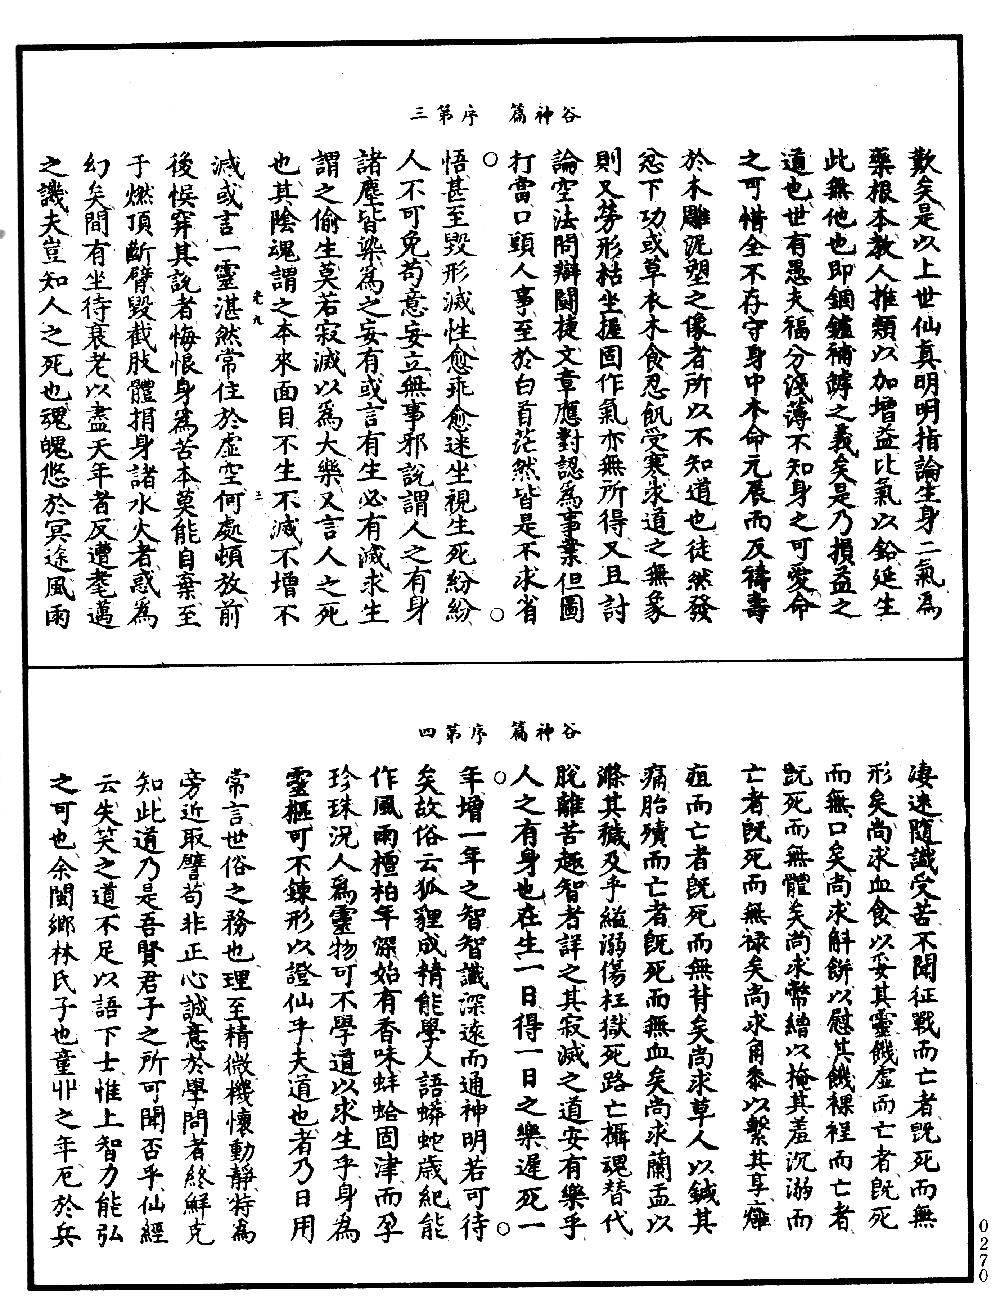 谷神篇　序第三
歎矣是以上世仙真明明指論生身二氣為
藥根本教人推類以加增益比氣以鉛延生
此無他也即錮鑪補鎼之義矣是乃損益之
道也世有愚夫福分淺薄不知身之可愛命
之可惜全不存守身中本命元辰而反禱壽
於木雕泥塑之像者所以不知道也徒然發
忿下功或草衣木食忍飢受寒求道之無象
則又勞形枯坐握固作氣亦無所得又且討
論空法問辯鬬捷文章應對認為事業但圖
打當口頭人事至於白首茫然皆是不求省
悟甚至毀形滅性愈乖愈迷坐視生死紛紛
人不可免苟意妄立無事邪說謂人之有身
諸塵皆染為之妄有或言有生必有滅求生
謂之偷生莫若寂滅以為大樂又言人之死
也其陰魂謂之本來面目不生不滅不增不
光九　三
減或言一靈湛然常住於虛空何處頓放前
後悞穿其說者悔恨身為苦本莫能自棄至
于燃頂斷臂毀截肢體捐身諸水火者惑為
幻矣間有坐待衰老以盡天年者反遭耄邁
之譏夫豈知人之死也魂魄悠於冥途風雨
谷神篇　序第四
淒迷隨識受苦不聞征戰而亡者既死而無
形矣尚求血食以妥其靈饑虛而亡者既死
而無口矣尚求斛餅以慰其饑裸裎而亡者
既死而無體矣尚求幣繒以掩其羞沉溺而
亡者既死而無祿矣尚求角黍以繫其享癰
疽而亡者既死而無苛矣尚求草人以鍼其
痛胎殰而亡者既死而無血矣尚求蘭盂以
滌其穢及乎縊溺傷枉獄死路亡攝魂替代
脫離苦趣智者詳之其寂滅之道安有樂乎
人之有身也在生一日得一日之樂遲死一
年增一年之智智識深遠而通神明若可待
矣故俗云狐貍成精能學人語蟒蛇歲紀能
作風雨檀柏年深始有香味蚌蛤固津而孕
珍珠況人為靈物可不學道以求生乎身為
靈樞可不鍊形以證仙乎夫道也者乃日用
常言世俗之務也理至精微機懷動靜特為
旁近取譬苟非正心誠意於學問者終鮮克
知此道乃是吾賢君子之所可聞否乎仙經
云失笑之道不足以語下士惟上智力能弘
之可也余閩鄉林氏子也童丱之年厄於兵
0270